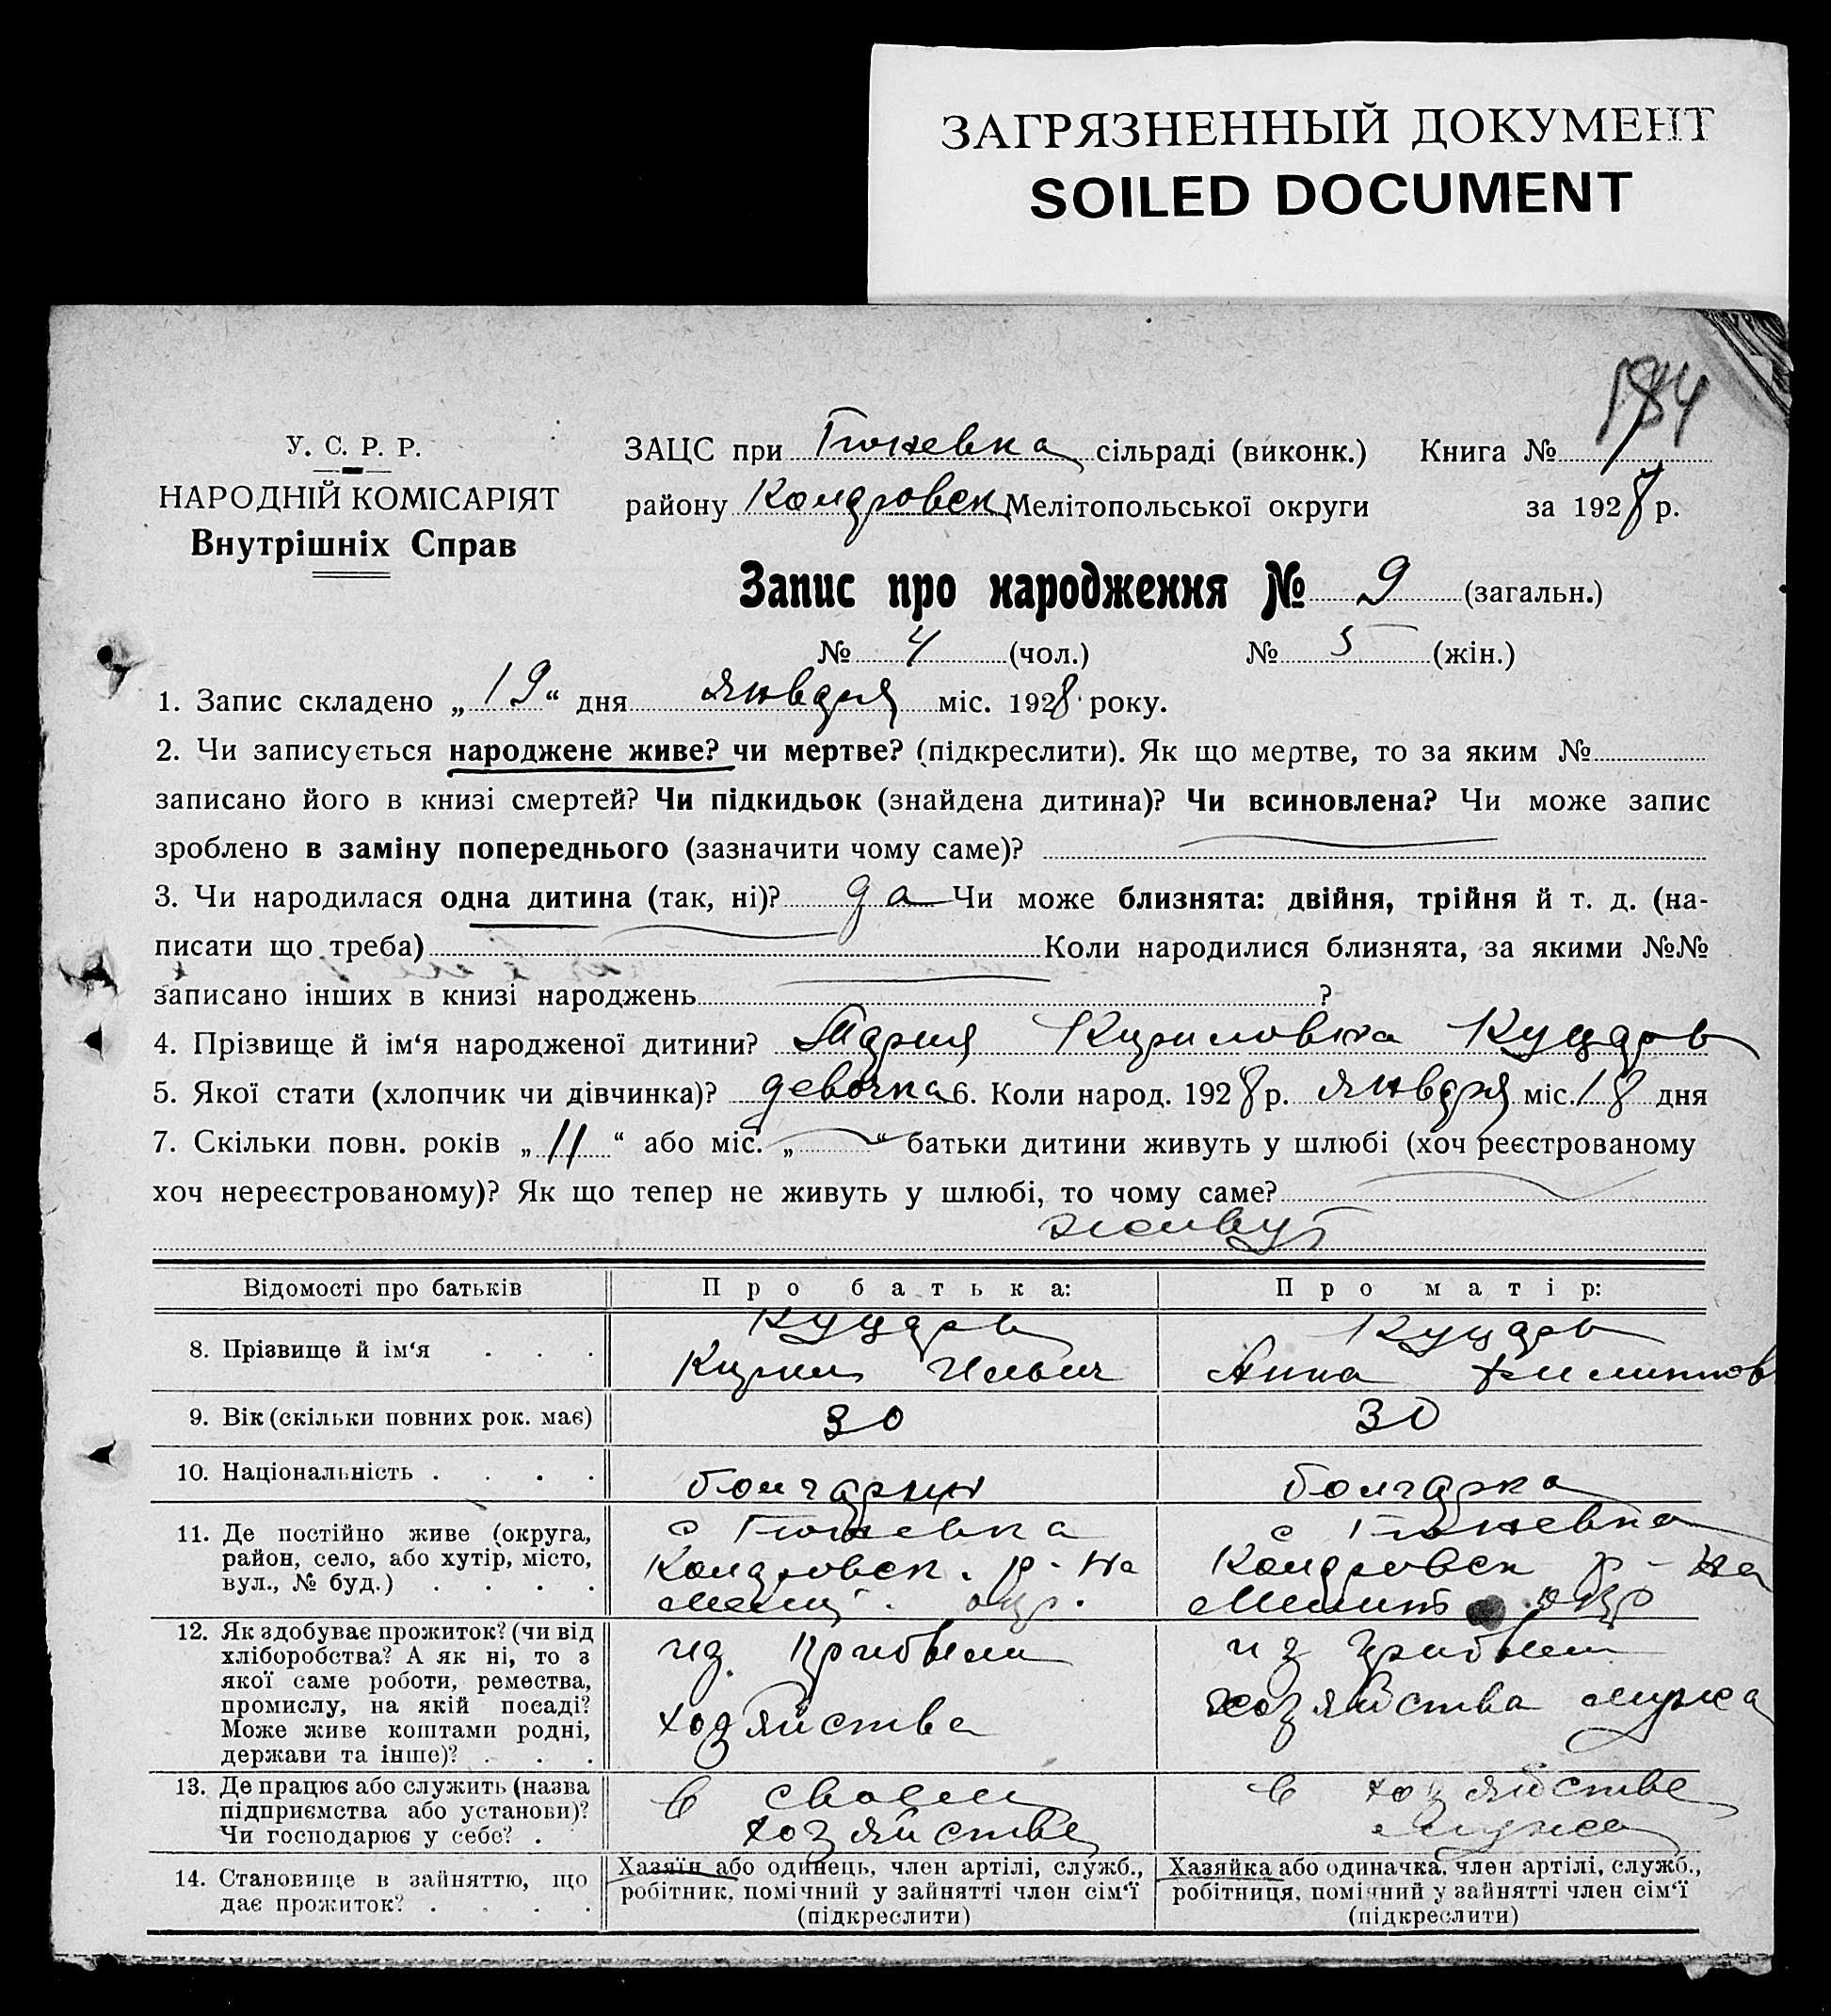 ЗАГРЯЗНЕННЫЙ ДОКУМЕНТ
SOILED DOCUMENT
184
У. С. Р. Р.
НАРОДНІЙ КОМІСАРІЯТ
Внутрішніх Справ
ЗАЦС при Гюневка сільраді (виконк.) Книга №
району Колдровск Мелітопольської округи за 1928 р.
Запис про народження № 9 (загальн.)
№ 4 (чол.) № 5 (жін.)
1. Запис складено „19“ дня января міс. 1928 року.
2. Чи записується народжене живе? чи мертве? (підкреслити). Як що мертве, то за яким №
записано його в книзі смертей? Чи підкидьок (знайдена дитина)? Чи всиновлена? Чи може запис
зроблено в заміну попереднього (зазначити чому саме)?
3. Чи народилася одна дитина (так, ні)? да Чи може близнята: двійня, трійня й т. д. (на-
писати що треба) Коли народилися близнята, за якими №№
записано інших в книзі народжень ?
4. Прізвище й ім‘я народженої дитини? Мария Кириловна Куцаров
5. Якої стати (хлопчик чи дівчинка)? девочка 6. Коли народ. 1928 р. января міс. 18 дня
7. Скільки повн. років „11“ або міс. „ “ батьки дитини живуть у шлюбі (хоч реєстрованому
хоч нереєстрованому)? Як що тепер не живуть у шлюбі, то чому саме?
живут
Відомості про батьків Про батька: Про матір:
8. Прізвище й ім‘я Куцаров Кирил Ильич Куцаров Анна Филиппов
9. Вік (скільки повних рок. має) 30 30
10. Національність болгарин болгарка
11. Де постійно живе (округа,
район, село, або хутір, місто,
вул., № буд.)
с Гюневка
Колдровск. р-на
Мелит. окр.
с Гюневка
Колдровск р-на
Мелит. окр
12. Як здобуває прожиток? (чи від
хліборобства? А як ні, то з
якої саме роботи, ремества,
промислу, на якій посаді?
Може живе коштами родні,
держави та інше)?
из прибыли
хозяйства
из прибыли
хозяйства мужа
13. Де працює або служить (назва
підприємства або установи)?
Чи господарює у себе?
в своем
хозяйстве
в хозяйстве
мужа
14. Становище в зайняттю, що
дає прожиток?
Хазяїн або одинець, член артілі, служб.,
робітник, помічний у зайнятті член сім‘ї
(підкреслити)
Хазяйка або одиначка, член артілі, служб.,
робітниця, помічний у зайнятті член сім‘ї
(підкреслити)